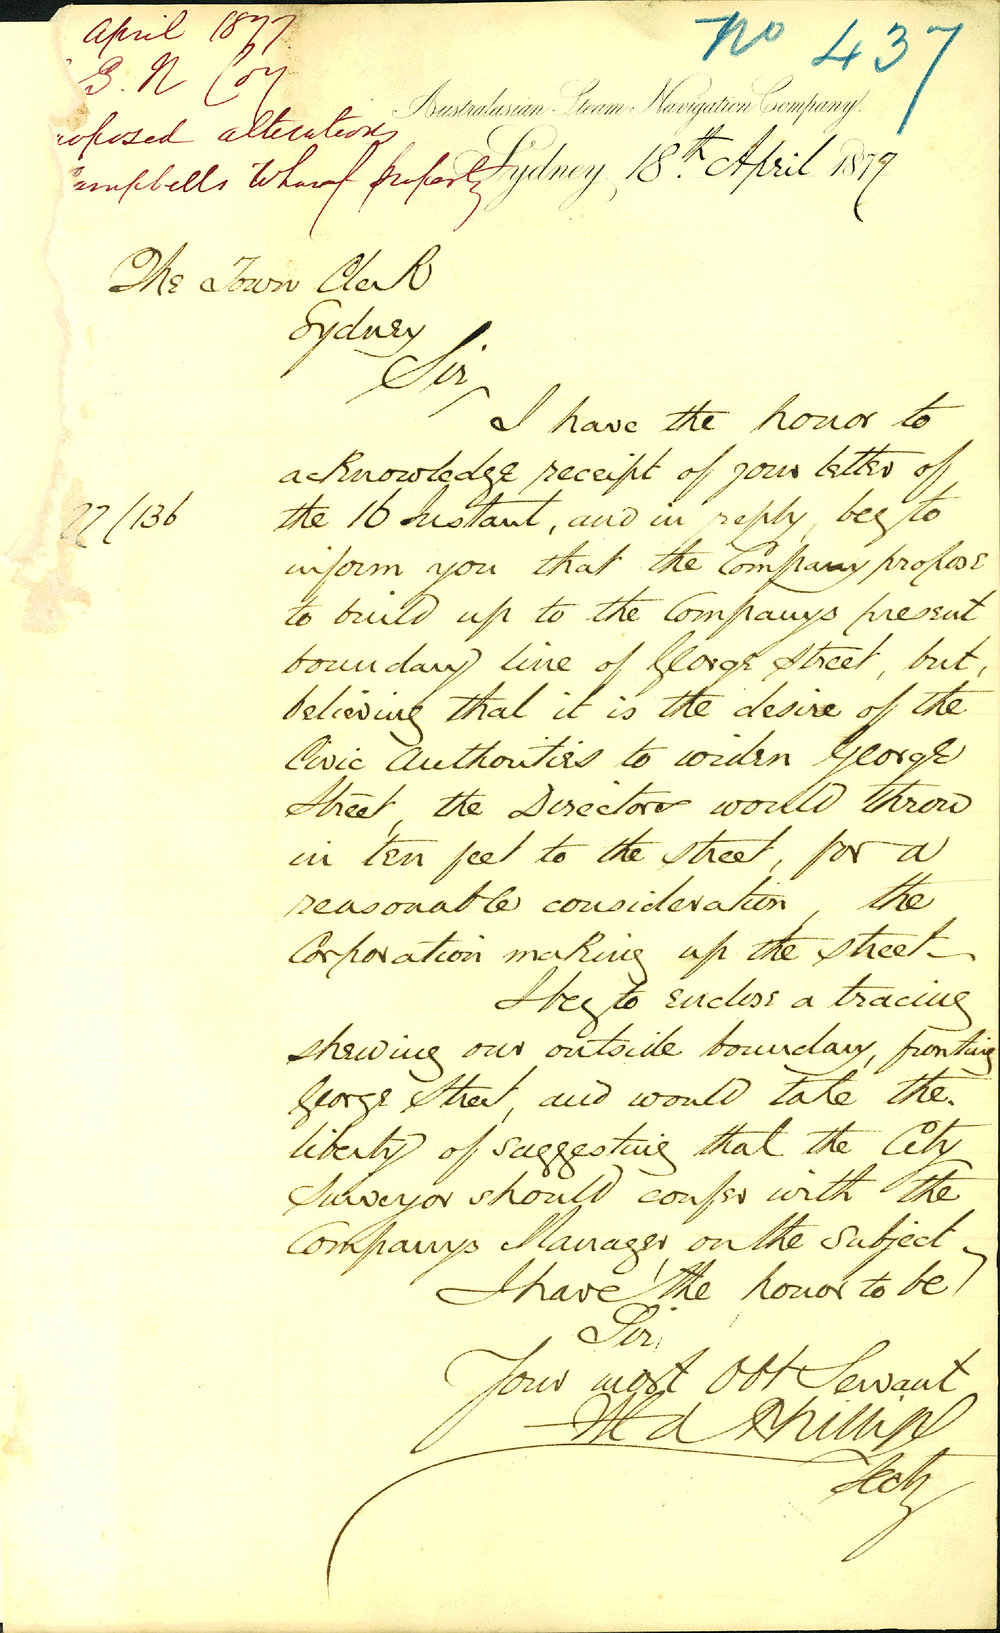 April 1877
S. N Coy
roposed alterations
ampbells Wharf property
No 437
Australasian Steam Navigation Company.
Sydney, 18th April 1877
The Town Clerk
Sydney
Sir
I have the honor to
acknowledge receipt of your letter of
77/136
the 16 Instant, and in reply, beg to
inform you that the Company propose
to build up to the Companys present
boundary line of George Street, but,
believing that it is the desire of the
Civic Authorities to widen George
Street, the Directors would throw
in ten feet to the street, for a
reasonable consideration, the
Corporation making up the street—
I beg to enclose a tracing
shewing our outside boundary, fronting
George Street, and would take the
liberty of suggesting that the City
Surveyor should confer with the
Companys Manager, on the subject
I have the honor to be
Sir,
Your most Obt Servant
Phillips
Secty